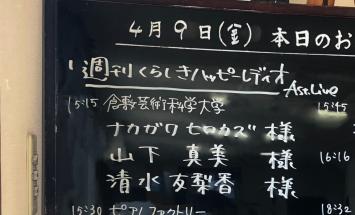 4月9日(金) 本日のお
週刊くらしきハッピーレディオ
Ast.Live
15:15 倉敷芸術科学大学 15:45
ナカガワ ヒロカズ 様
山下 真美 様 16:16
清水 友梨香 様
15:30 ピアノファクトリー 18:32